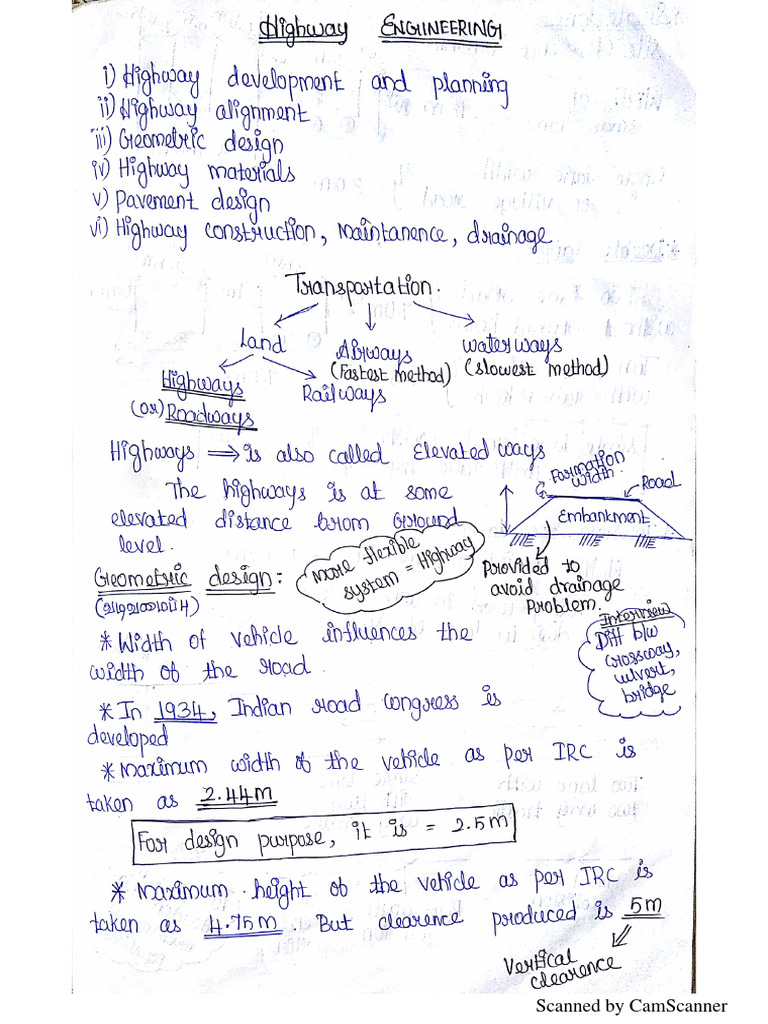 Highway ENGINEERING
i) Highway development and planning
ii) Highway alignment
iii) Geometric design
iv) Highway materials
v) Pavement design
vi) Highway construction, Maintanence, drainage
Transportation.
Land
Airways
(Fastest method)
waterways
(slowest method)
Highways
(or) Roadways
Railways
Highways ⟹ is also called Elevated ways
The highways is at some
elevated distance from Ground
level.
Formation
width
Road
Embankment
Provided to
avoid drainage
Problem.
More flexible
system = Highway
Geometric design:
Interview
Diff b/w
crossway,
culvert,
bridge
* Width of vehicle influences the
width of the road.
* In 1934, Indian road congress is
developed
* Maximum width of the vehicle as per IRC is
taken as 2.44m
For design purpose, it is = 2.5m
* Maximum height of the vehicle as per IRC is
taken as 4.75m. But clearence produced is 5m
Vertical
clearence
Scanned by CamScanner